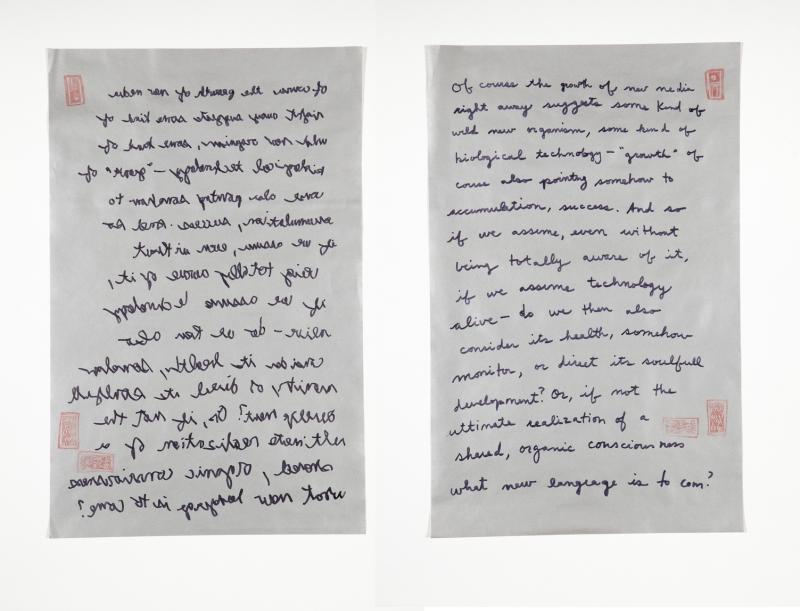 Of course the growth of new media
right away suggests some kind of
wild new organism, some kind of
biological technology – "growth" of
course also pointing somehow to
accumulation, success. And so
if we assume, even without
being totally aware of it,
if we assume technology
alive – do we then also
consider its health, somehow
monitor, or direct its soulfull
development? Or, if not the
ultimate realization of a
shared, organic consciousness
what new language is to come?
Of course the growth of new media
right away suggests some kind of
wild new organism, some kind of
biological technology – "growth" of
couse also pointing somehow to
accumulation, success. And so
if we assume, even without
being totally aware of it,
if we assume technology
alive – do we then also
consider its health, somehow
monitor, or direct its soulfull
development? Or, if not the
ultimate realization of a
shared, organic consciousness
what new language is to com?